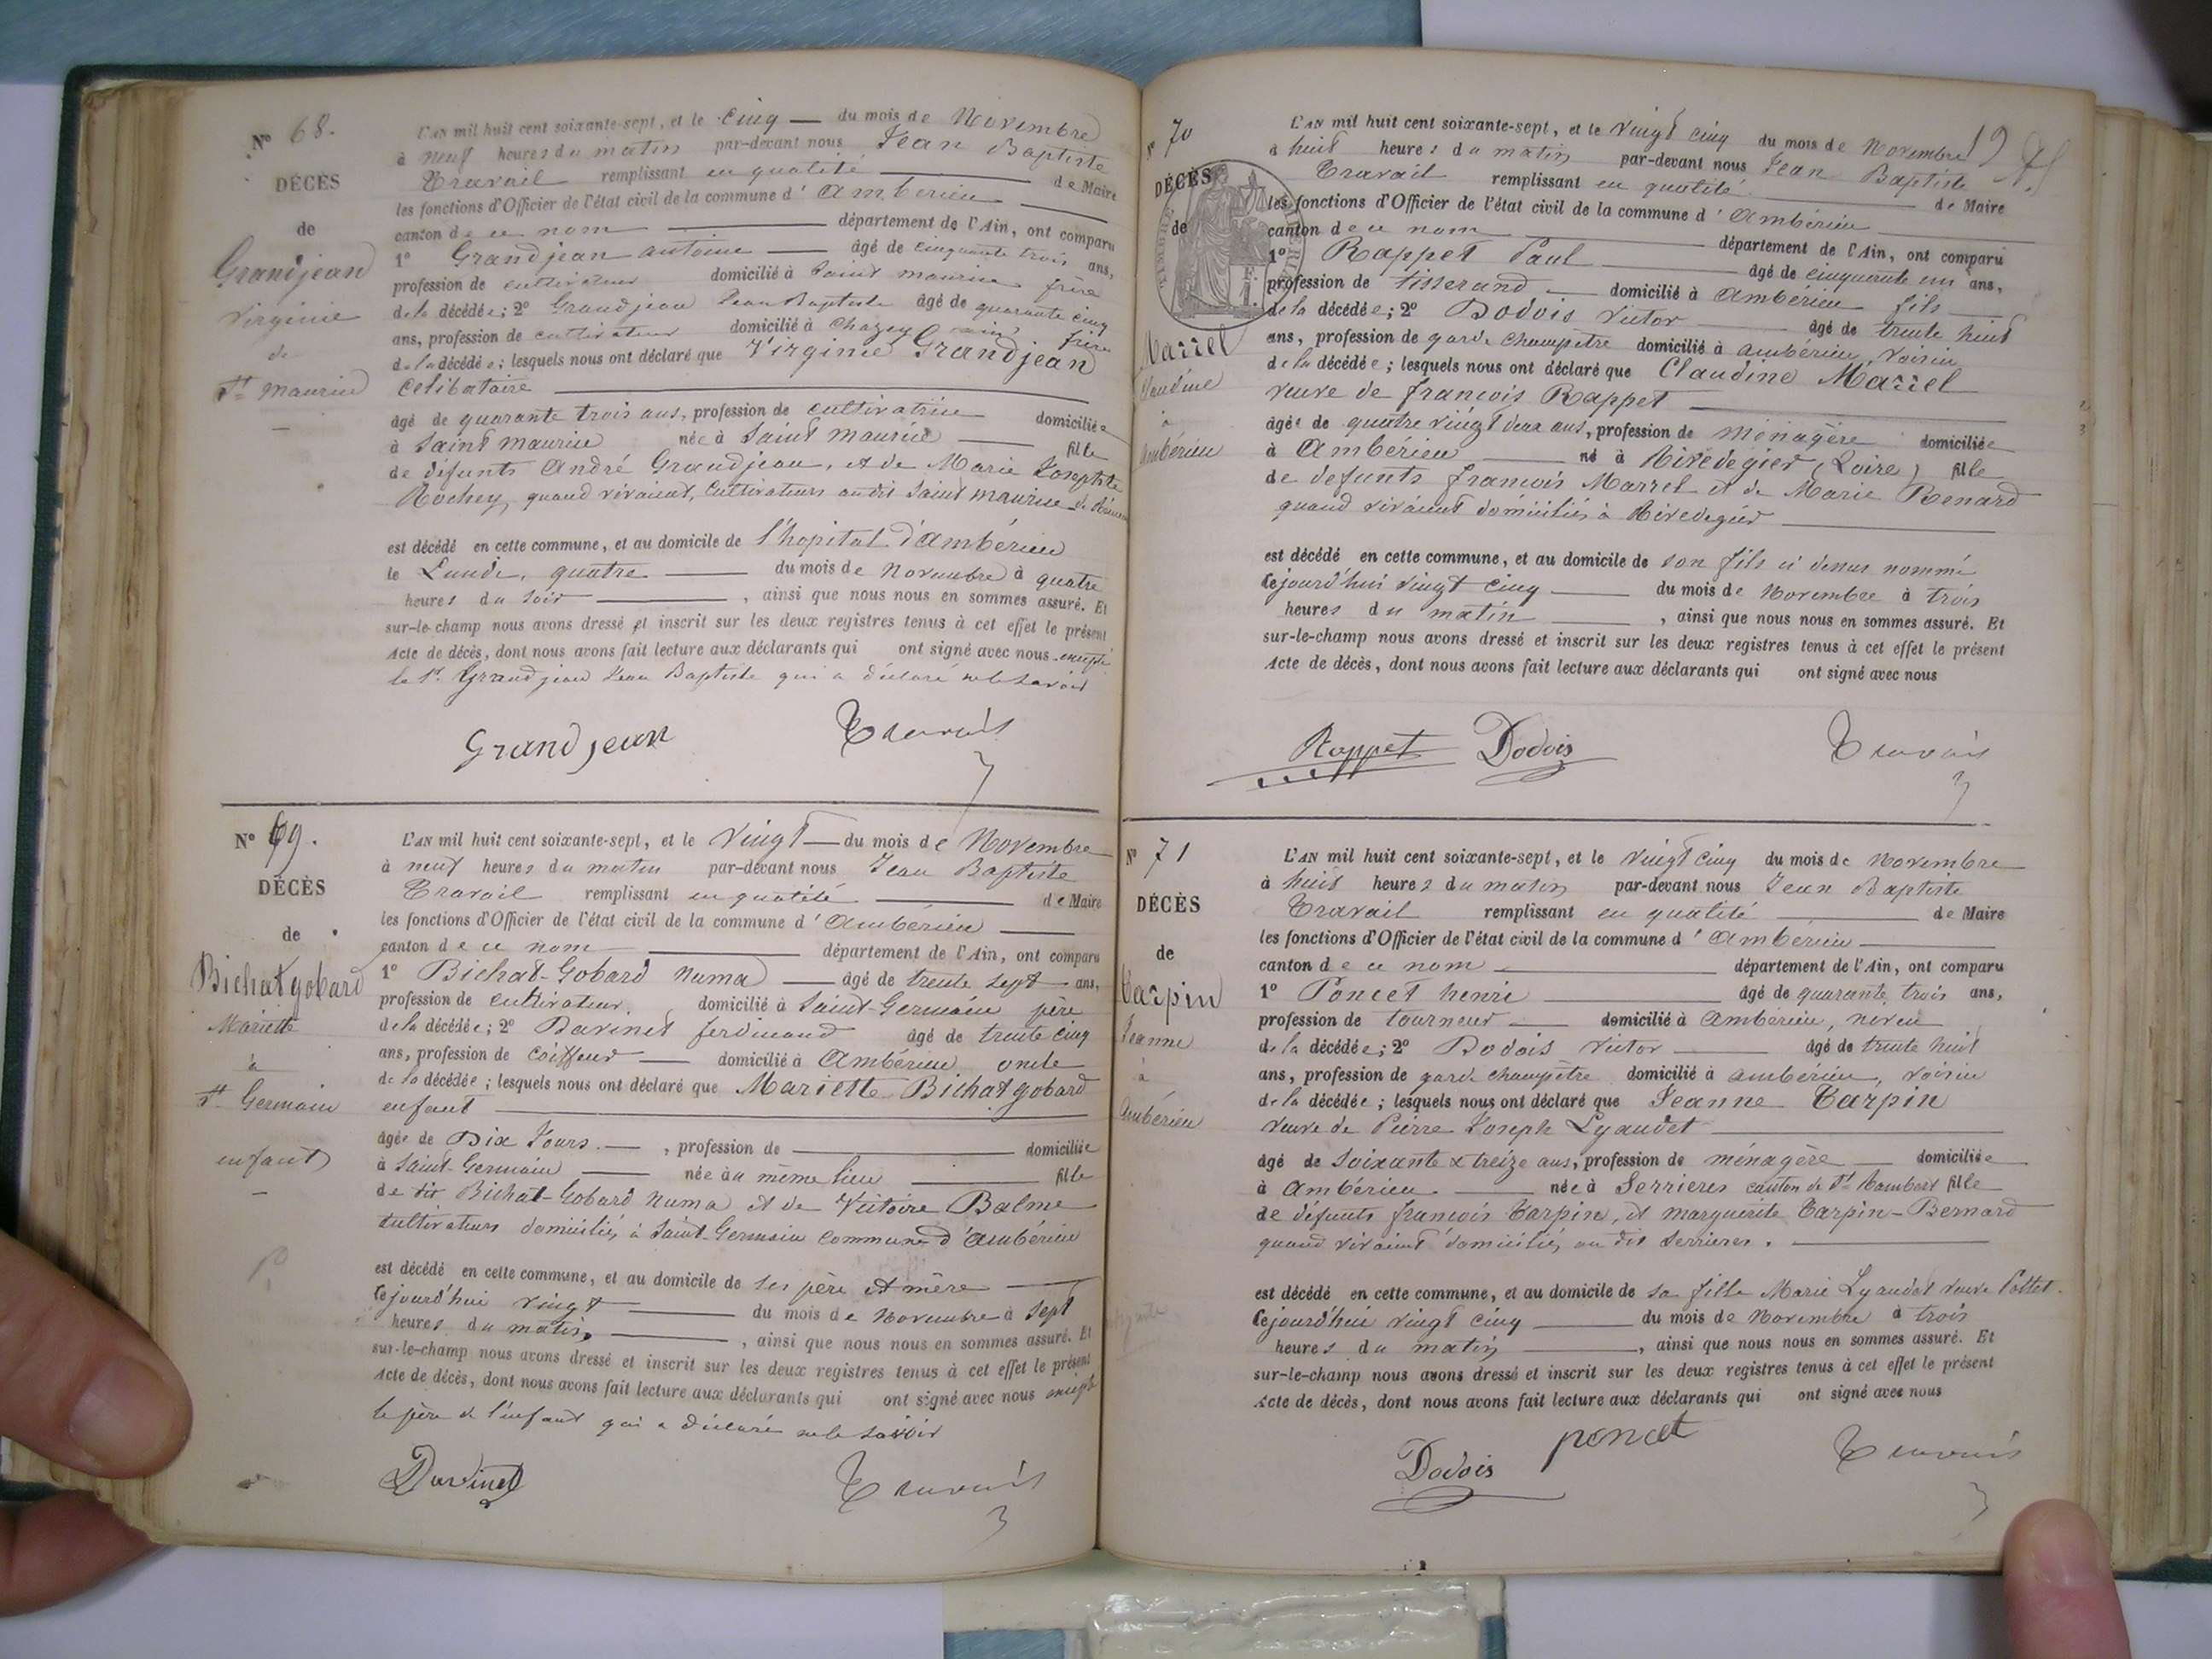 N° 68.
DÉCÈS
de
Grandjean
Virginie
de
St Maurice
L'AN mil huit cent soixante-sept, et le cinq du mois de Novembre
à neuf heures du matin par-devant nous Jean Baptiste
Travail remplissant en qualité de Maire
les fonctions d'Officier de l'état civil de la commune d'Ambérieu
canton de ce nom département de l'Ain, ont comparu
1° Grandjean antoine âgé de cinquante trois ans,
profession de cultivateur domicilié à Saint maurice frère
de la décédée; 2° Grandjean Jean Baptiste âgé de quarante cinq
ans, profession de cultivateur domicilié à Chazey ain, frère
de la décédée; lesquels nous ont déclaré que Virginie Grandjean
Célibataire
âgé de quarante trois ans, profession de cultivatrice domiciliée
à Saint maurice née à Saint maurice fille
de défunts André Grandjean, et de Marie Josephte
Rochey, quand vivaient, Cultivateurs au dit Saint maurice de
est décédé en cette commune, et au domicile de l'hopital d'Ambérieu
le Lundi, quatre du mois de novembre à quatre
heures du soir, ainsi que nous nous en sommes assuré. Et
sur-le-champ nous avons dressé et inscrit sur les deux registres tenus à cet effet le présent
Acte de décès, dont nous avons fait lecture aux déclarants qui ont signé avec nous excepté
le Sr Grandjean Jean Baptiste qui a déclaré ne le savoir
Grandjean Travail
N° 69.
DÉCÈS
de
Bichat gobard
Mariette
à
St Germain
enfant
L'AN mil huit cent soixante-sept, et le vingt du mois de Novembre
à neuf heures du matin par-devant nous Jean Baptiste
Travail remplissant en qualité de Maire
les fonctions d'Officier de l'état civil de la commune d'Ambérieu
canton de ce nom département de l'Ain, ont comparu
1° Bichat-Gobard Numa âgé de trente sept ans,
profession de cultivateur, domicilié à Saint-Germain père
de la décédée; 2° Davinet ferdinand âgé de trente cinq
ans, profession de coiffeur domicilié à Ambérieu oncle
de la décédée; lesquels nous ont déclaré que Mariette Bichat gobard
enfant
âgée de Dix Jours, profession de domiciliée
à Saint-Germain née au même lieu fille
de dit Bichat-Gobard Numa et de Victoire Balme
cultivateurs domiciliés à Saint-Germain commune d'Ambérieu
est décédé en cette commune, et au domicile de ses père et mère
cejourd'hui vingt du mois de Novembre à sept
heures du matin, ainsi que nous nous en sommes assuré. Et
sur-le-champ nous avons dressé et inscrit sur les deux registres tenus à cet effet le présent
Acte de décès, dont nous avons fait lecture aux déclarants qui ont signé avec nous excepté
le père de l'enfant qui a déclaré ne le savoir
Davinet Travail
N° 70
DÉCÈS
de
Marrel
Claudine
à
Ambérieu
19
L'AN mil huit cent soixante-sept, et le vingt cinq du mois de Novembre
à huit heures du matin par-devant nous Jean Baptiste
Travail remplissant en qualité de Maire
les fonctions d'Officier de l'état civil de la commune d'Ambérieu
canton de ce nom département de l'Ain, ont comparu
1° Rappet Paul âgé de cinquante un ans,
profession de tisserand domicilié à Ambérieu fils
de la décédée; 2° Dodois Victor âgé de trente huit
ans, profession de garde champêtre domicilié à ambérieu, voisin
de la décédée; lesquels nous ont déclaré que Claudine Marrel
veuve de françois Rappet
âgée de quatre vingt deux ans, profession de ménagère domiciliée
à Ambérieu né à Rivedegier (Loire) fille
de defunts françois Marrel et de Marie Renard
quand vivaient domiciliés à Rivedegier
est décédé en cette commune, et au domicile de son fils ci denus nommé
cejourd'hui vingt cinq du mois de Novembre à trois
heures du matin, ainsi que nous nous en sommes assuré. Et
sur-le-champ nous avons dressé et inscrit sur les deux registres tenus à cet effet le présent
Acte de décès, dont nous avons fait lecture aux déclarants qui ont signé avec nous
Rappet Dodois Travail
N° 71
DÉCÈS
de
Tarpin
Jeanne
à
Ambérieu
L'AN mil huit cent soixante-sept, et le vingt cinq du mois de Novembre
à huit heures du matin par-devant nous Jean Baptiste
Travail remplissant en qualité de Maire
les fonctions d'Officier de l'état civil de la commune d'Ambérieu
canton de ce nom département de l'Ain, ont comparu
1° Poncet henri âgé de quarante trois ans,
profession de tourneur domicilié à Ambérieu, neveu
de la décédée; 2° Dodois Victor âgé de trente huit
ans, profession de garde champêtre domicilié à ambérieu, voisin
de la décédée; lesquels nous ont déclaré que Jeanne Tarpin
veuve de Pierre Joseph Lyaudet
âgé de Soixante & treize ans, profession de ménagère domiciliée
à Ambérieu née à Serrieres canton de St Rambert fille
de défunts françois Tarpin, et marguerite Tarpin-Bernard
quand vivaient domiciliés au dit Serrieres.
est décédé en cette commune, et au domicile de sa fille Marie Lyaudet veuve Pottet.
cejourd'hui vingt cinq du mois de Novembre à trois
heures du matin, ainsi que nous nous en sommes assuré. Et
sur-le-champ nous avons dressé et inscrit sur les deux registres tenus à cet effet le présent
Acte de décès, dont nous avons fait lecture aux déclarants qui ont signé avec nous
Dodois poncet Travail